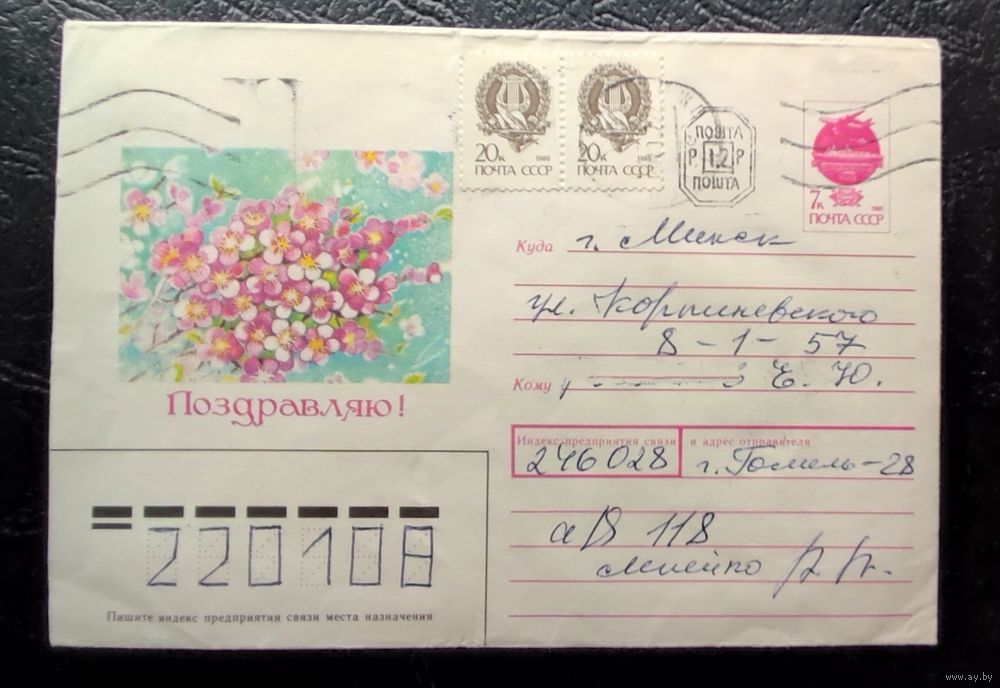 20к 1988
ПОЧТА СССР
20к 1988
ПОЧТА СССР
ПОШТА
Р 12 Р
ПОШТА
7к
ПОЧТА СССР
Куда г. Минск
ул. Корженевского
8-1-57
Кому Е. Ю.
Поздравляю!
Индекс предприятия связи и адрес отправителя
246028 г. Гомель-28
а/я 118
Р. Р.
220108
Пишите индекс предприятия связи места назначения
www.ay.by